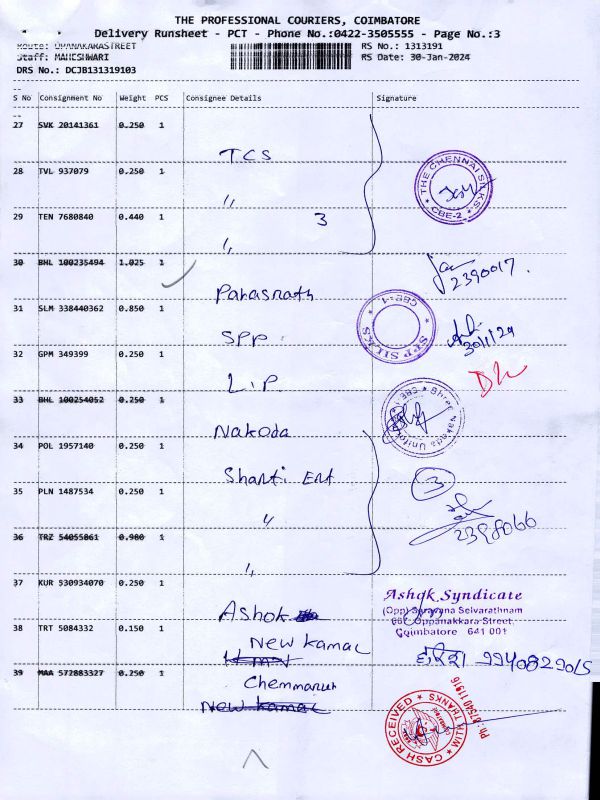 THE PROFESSIONAL COURIERS, COIMBATORE
Delivery Runsheet - PCT - Phone No.:0422-3505555 - Page No.:3
Route: OPANAKARASTREET RS No.: 1313191
Staff: MAHESHWARI RS Date: 30-Jan-2024
DRS No.: DCJB131319103
S No Consignment No Weight PCS Consignee Details Signature
27 SVK 20141361 0.250 1
TCS
28 TVL 937079 0.250 1
THE CHENNAI SILKS
CBE-2
〃
29 TEN 7680840 0.440 1
3
〃
30 BHL 100235494 1.025 1
2390017.
Parasnath
31 SLM 338440362 0.850 1
SPP SILKS
CBE-1
SPP
30/1/24
32 GPM 349399 0.250 1
L.P
33 BHL 100254052 0.250 1
Nakoda
34 POL 1957140 0.250 1
Shanti Ent
35 PLN 1487534 0.250 1
3
〃
2398066
36 TRZ 54055861 0.980 1
〃
37 KUR 530934070 0.250 1
Ashok Syndicate
(Opp) Saravana Selvarathnam
Oppanakkara Street,
Coimbatore 641 001
Ashok
38 TRT 5084332 0.150 1
New Kamal
9940829015
39 MAA 572883327 0.250 1
Chemmanur
New Kamal
CASH RECEIVED
WITH THANKS